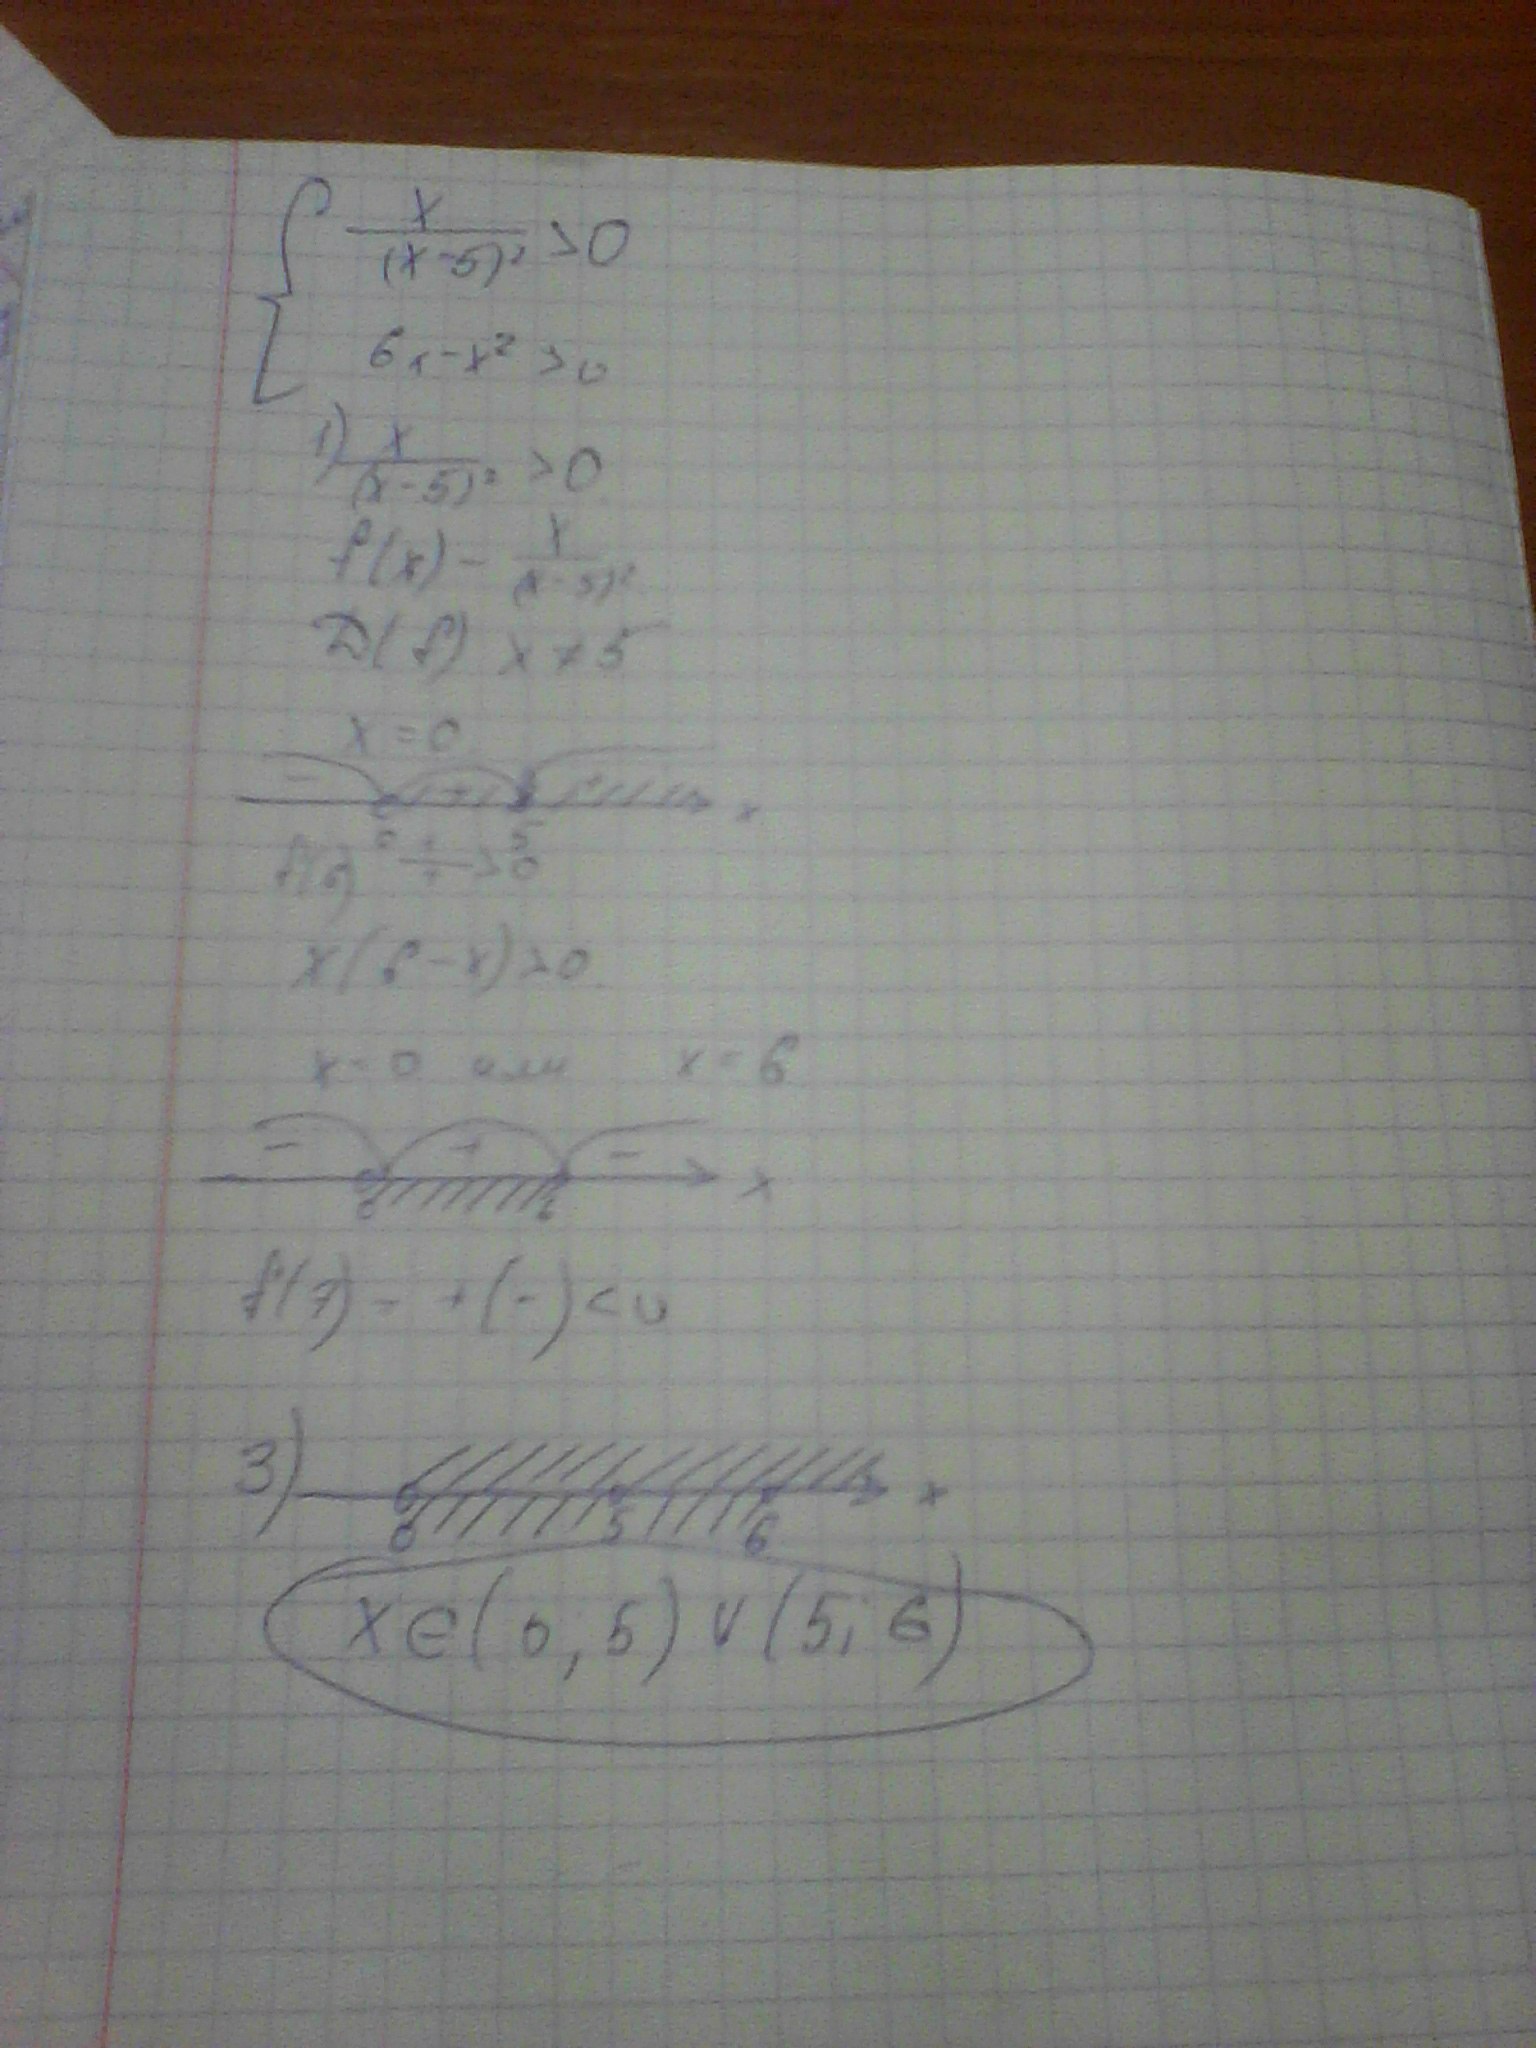 x
(x-5)² >0
6x-x² >0
1) x
(x-5)² >0
f(x) = x
(x-5)²
D(f) x≠5
x=0
- + + x
0 5
f(6) = + >0
+
x(6-x)>0
x=0 или x=6
- + - x
0 6
f(7) = +(-)<0
3) x
0 5 6
x∈(0;5)∪(5;6)